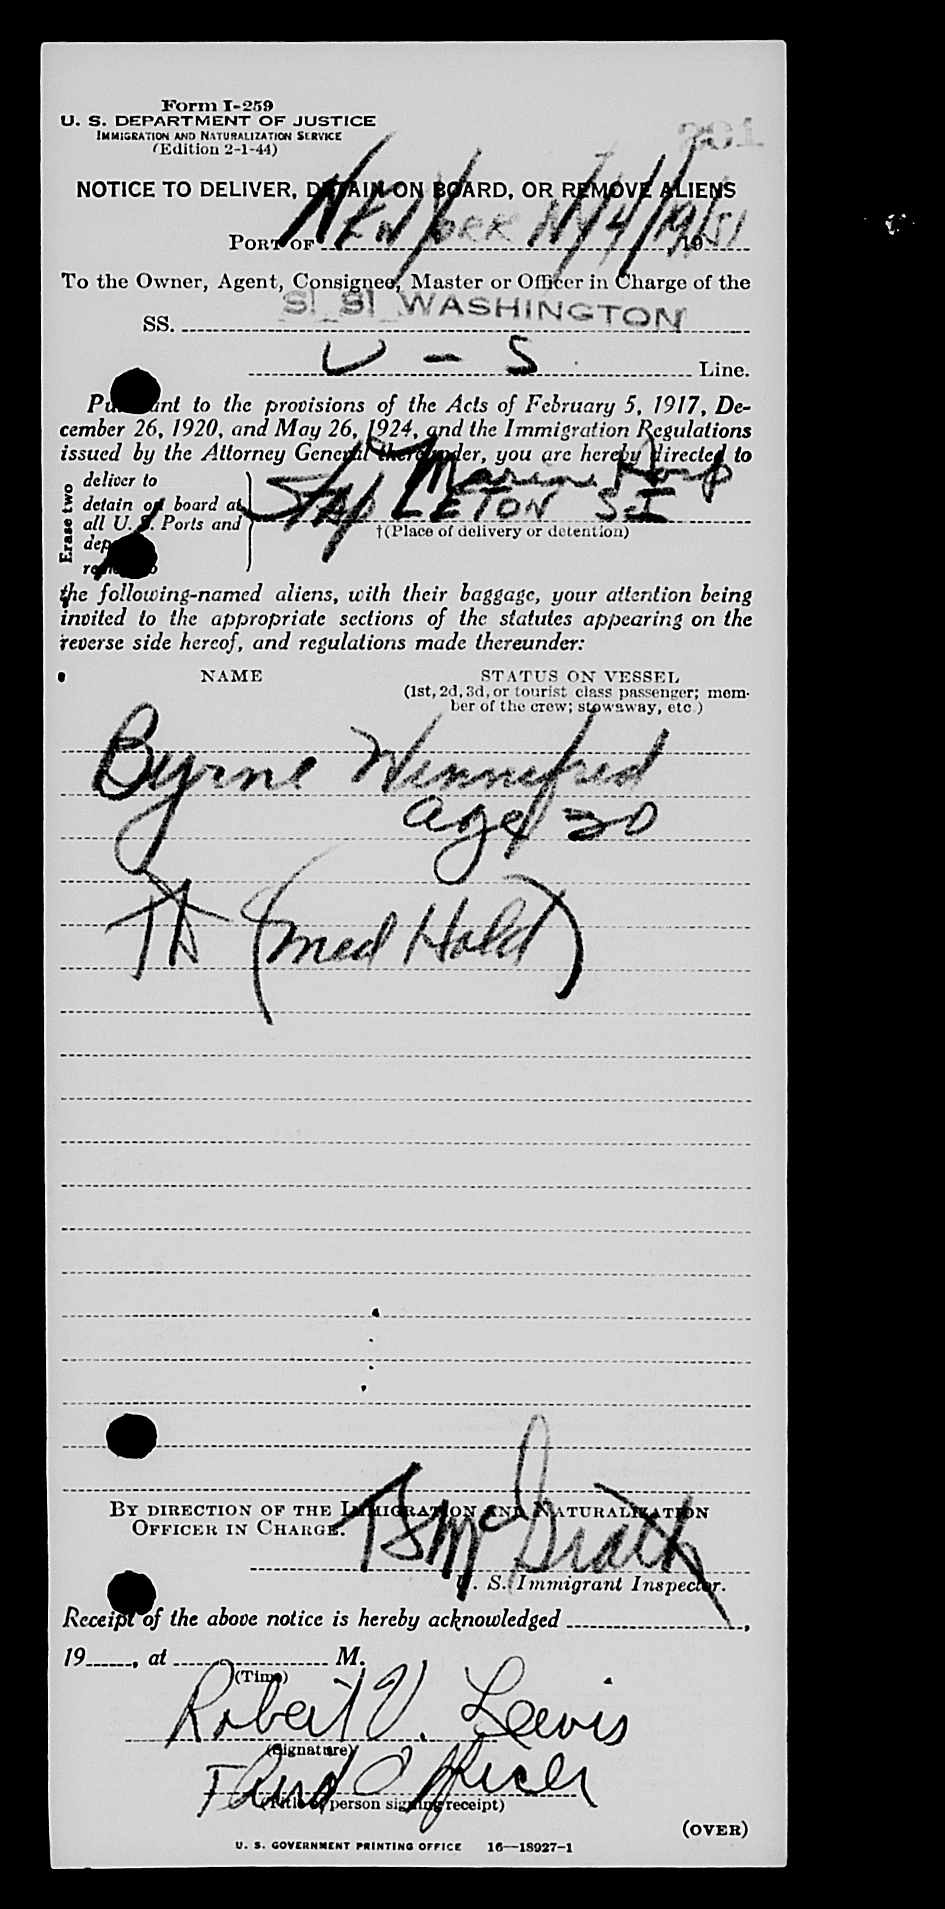 Form I-259
U. S. DEPARTMENT OF JUSTICE
IMMIGRATION AND NATURALIZATION SERVICE
(Edition 2-1-44)
NOTICE TO DELIVER, DETAIN ON BOARD, OR REMOVE ALIENS
PORT OF New York NY 4/19/51, 19
To the Owner, Agent, Consignee, Master or Officer in Charge of the
SS. S! S! WASHINGTON
U - S Line.
Pursuant to the provisions of the Acts of February 5, 1917, De-
cember 26, 1920, and May 26, 1924, and the Immigration Regulations
issued by the Attorney General thereunder, you are hereby directed to
Erase two
deliver to
detain on board at
all U. S. Ports and
Marine Hosp
STAPLETON SI
†(Place of delivery or detention)
the following-named aliens, with their baggage, your attention being
invited to the appropriate sections of the statutes appearing on the
reverse side hereof, and regulations made thereunder:
NAME
STATUS ON VESSEL
(1st, 2d, 3d, or tourist class passenger; mem-
ber of the crew; stowaway, etc.)
Byrne Winnifred
age 20
(med Hold)
BY DIRECTION OF THE IMMIGRATION AND NATURALIZATION
OFFICER IN CHARGE.
McGrath
U. S. Immigrant Inspector.
Receipt of the above notice is hereby acknowledged ,
19 , at M.
(Time)
Robert V. Lewis
(Signature)
Third Officer
(Title of person signing receipt)
(OVER)
U. S. GOVERNMENT PRINTING OFFICE 16—18927-1